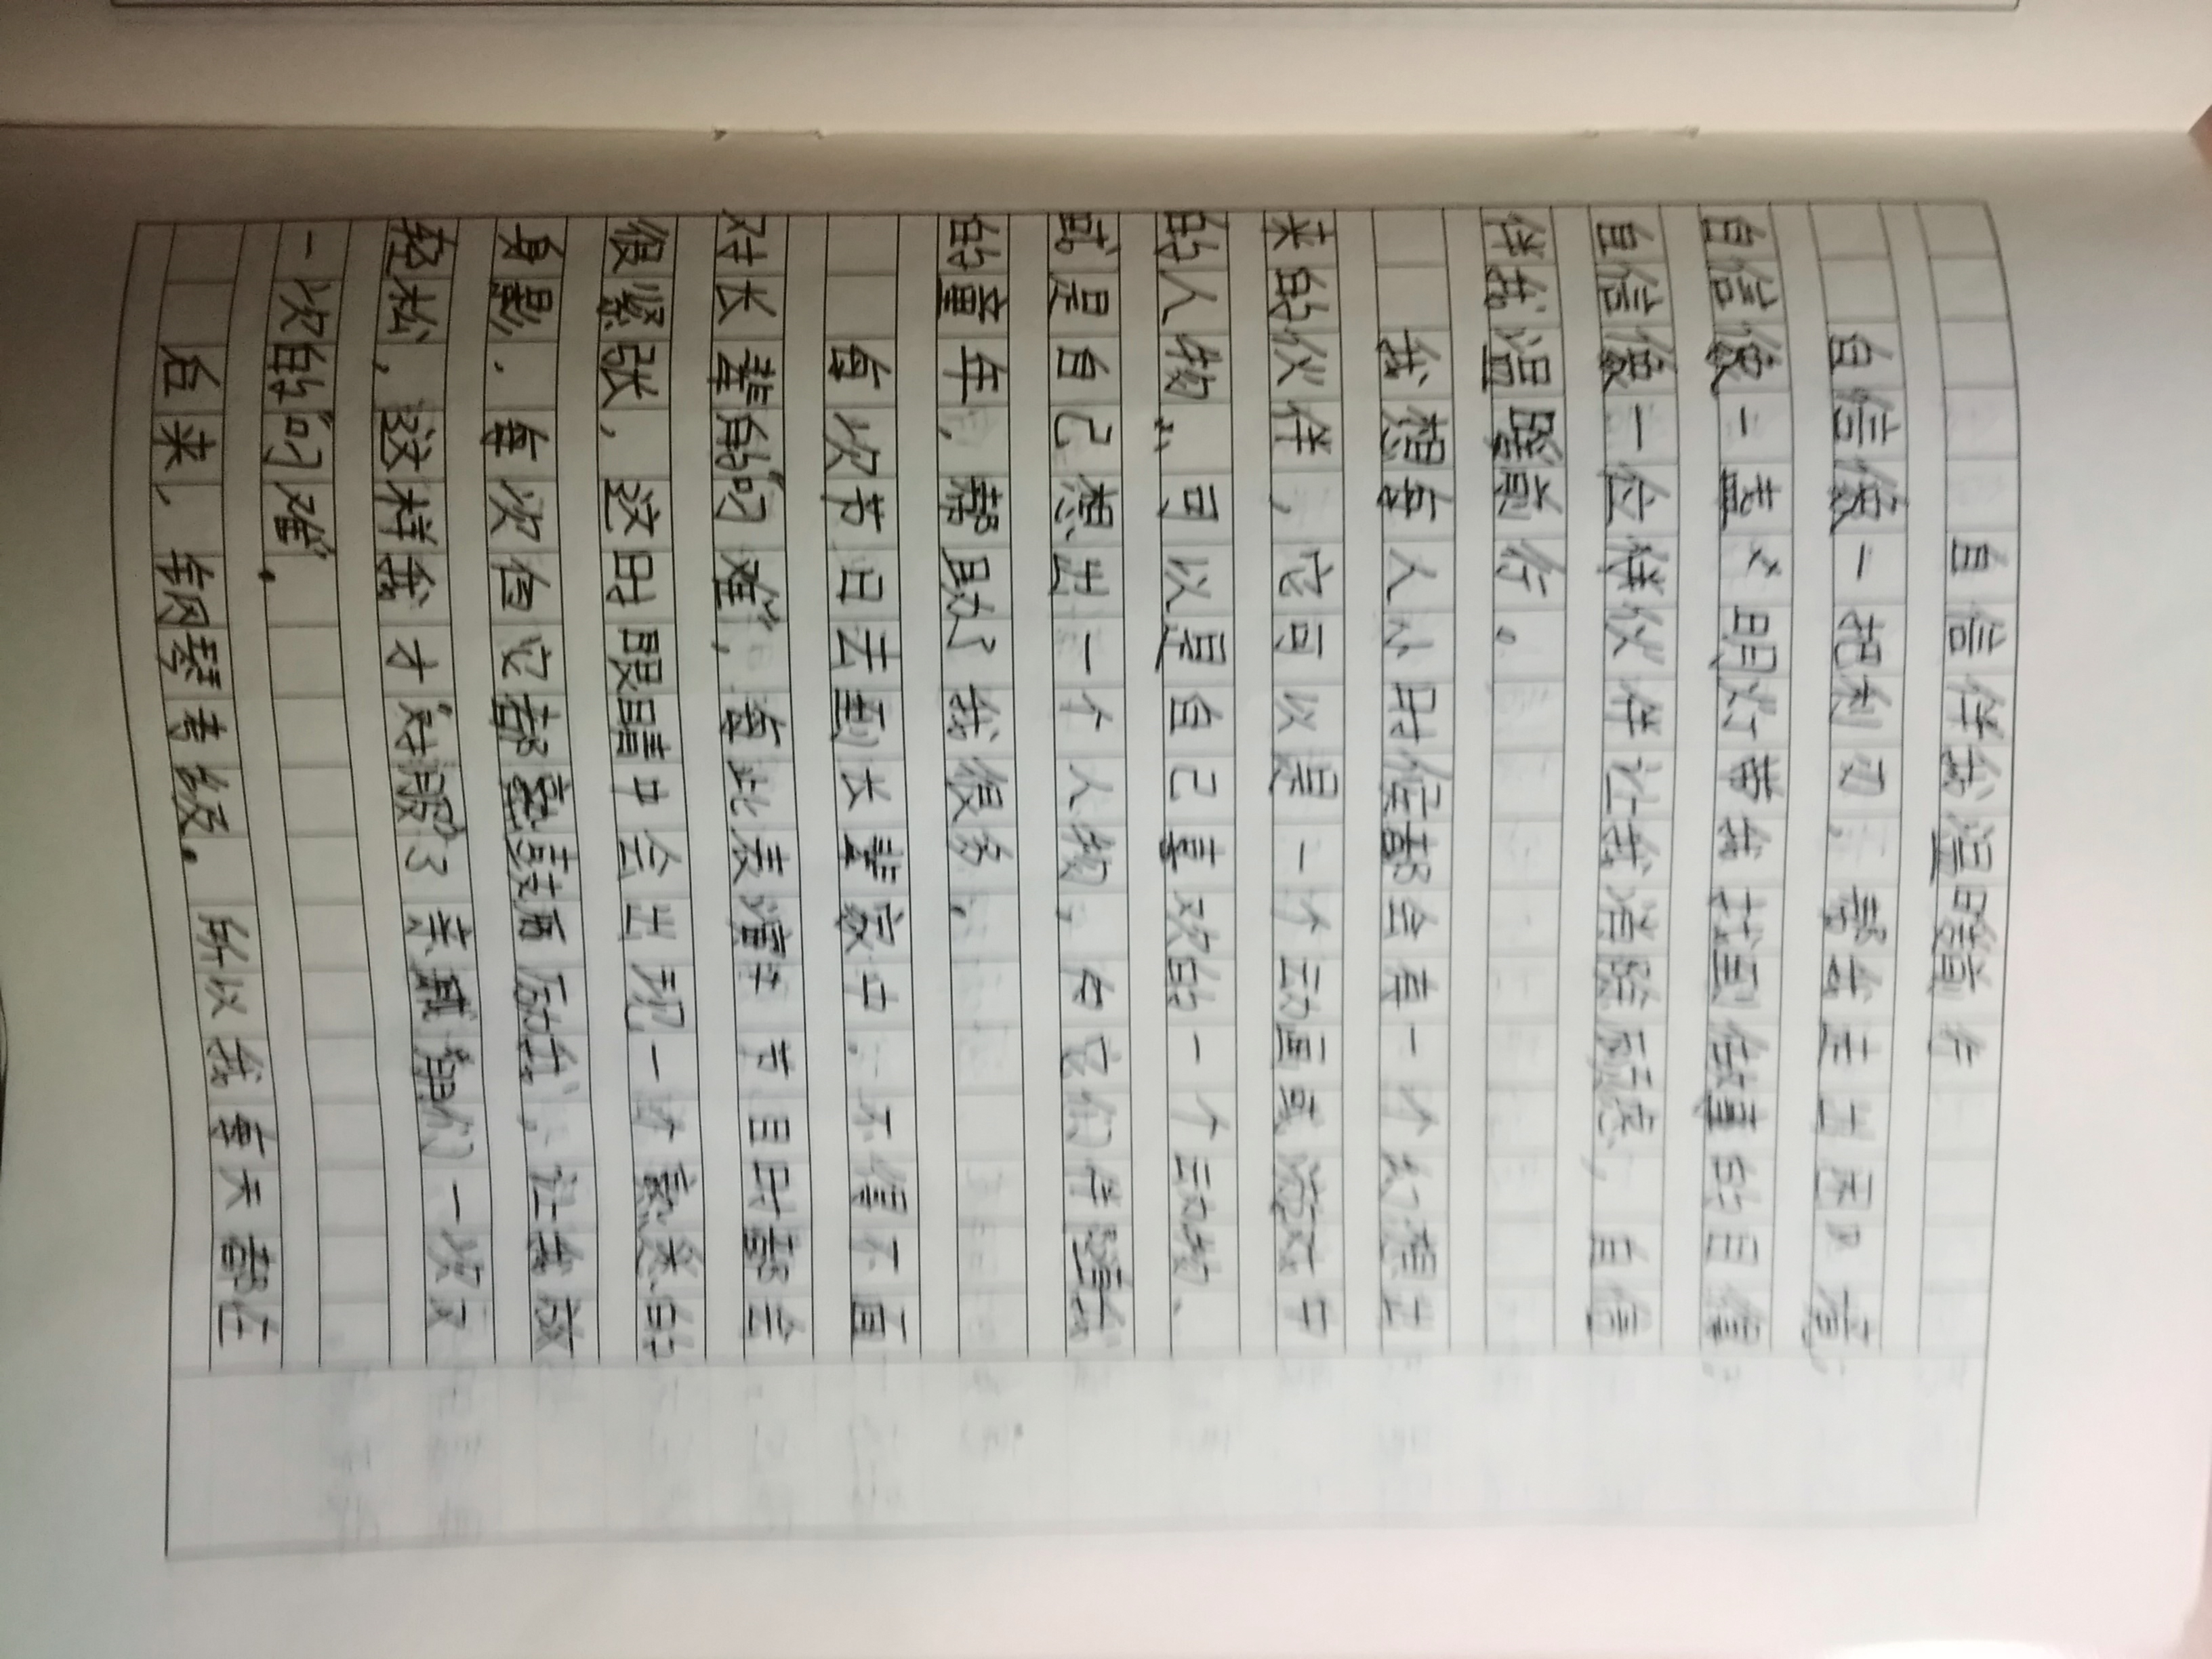 自信伴我温暖前行
自信像一把利刃，帮我走出困意，
自信像一盏明灯带我找到做事的目标。
自信像一位伙伴让我消除顾虑，自信
伴我温暖前行。
我想每人小时候都会有一个幻想出
来的伙伴，它可以是一个动画或游戏中
的人物，可以是自己喜欢的一个动物、
或是自己想出一个人物，由它们伴随我
的童年，帮助了我很多。
每次节日去到长辈家中，不得不面
对长辈的“刁难”，每此表演节目时都会
很紧张，这时眼睛中会出现一个熟悉的
身影，每次有它都会鼓励我，让我放
轻松，这样我才“对服”了亲戚们一次又
一次的“刁难”。
后来，钢琴考级，所以我每天都在